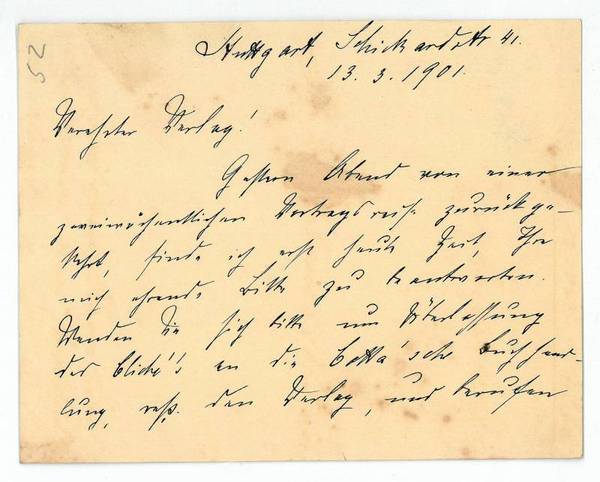 52
Stuttgart, Schickardstr 41.
13. 3. 1901.
Verehrter Verlag!
Gestern Abend von einer
zweiwöchentlichen Vortragsreise zurückge-
kehrt, finde ich erst heute Zeit, Ihre
mich ehrende Bitte zu beantworten.
Wenden Sie sich bitte um Überlassung
des Cliché's an die Cotta'sche Buchhand-
lung, resp. den Verlag, und berufen